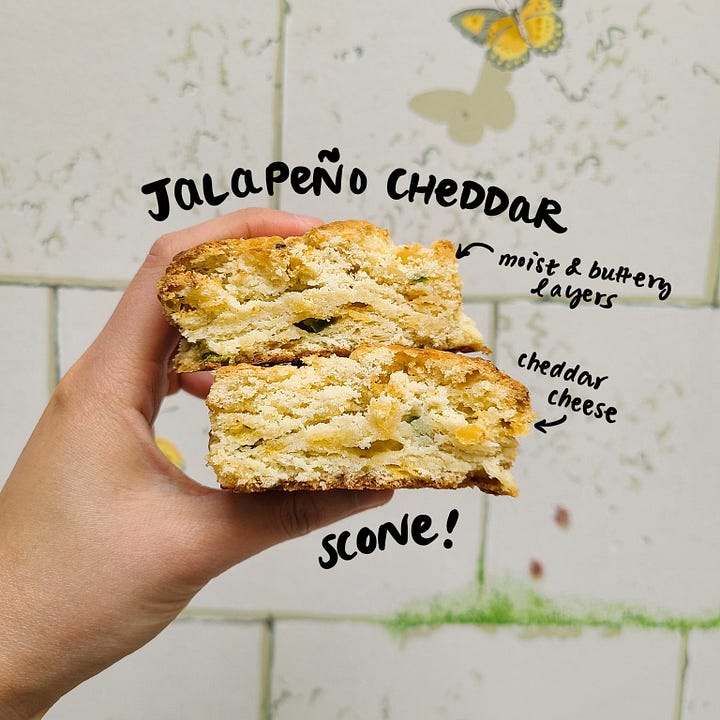 JALAPEÑO CHEDDAR
moist & buttery
layers
cheddar
cheese
SCONE!